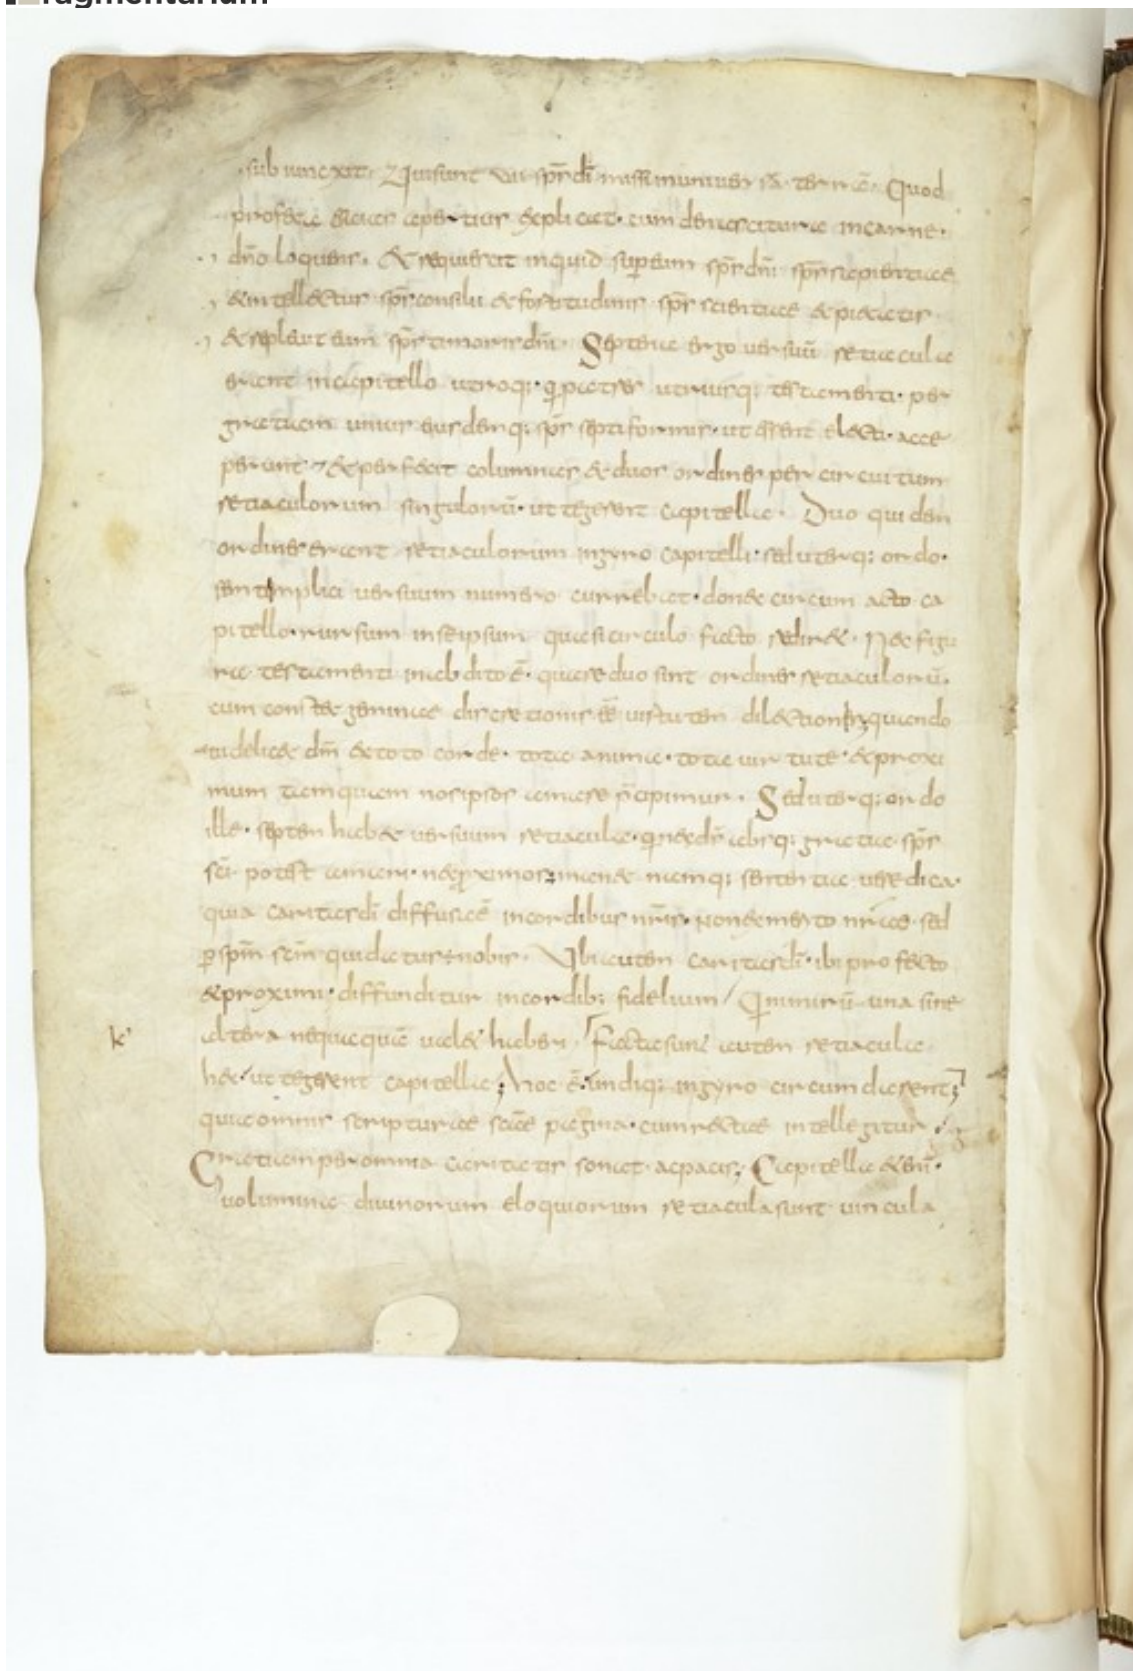 fragmentarium
subiunexit. Qui sunt VII sp̄s dī missi in univer sā terrā. Quod
profeta esaias apertius explicat. cum de nascituro in carne.
dn̄o loquens. & requiescit inquid sup eum sp̄s dn̄i sp̄s sapientiae
& intellectus sp̄s consilii & fortitudinis sp̄s scientiae & pietatis
& replevit eum sp̄s timoris dn̄i. Septena ergo versuū retiacula
erant in capitello utroq; q̄ patres utriusq; testamenti. per
gratiam unius eiusdemq; sp̄s septiformis. ut essent electi. acce
perunt & perfecit columnas & duos ordines per circuitum
retiaculorum singulorū. ut tegerent capitella. Duo quidem
ordines erant retiaculorum in gyro capitelli. sed uterq; ordo.
septemplici versuum numero currebat. donec circum acto ca
pitello. rursum in se ipsum quasi circulo facto redir&. Nec figu
ra testamenti in abdito ē. quare duo sint ordines retiaculorū.
cum constet geminae discretionis eē virtutem dilectionis quando
videlic& dm̄ & toto corde. tota anima. tota virtute. & proxi
mum tamquam nos ipsos amare p̄cipimur. Sed uterq; ordo
ille. septem hab& versuum retiacula. q̄ nec dr̄ absq; gratia sp̄s
sc̄i potest amari. nec proximos; man& namq; sententia vere dica.
quia caritas dī diffusa ē in cordibus nr̄is. non ex merito nr̄ae. sed
p̄ spm̄ scm̄ qui datus ē nobis. Ubi autem caritas dī. ibi profecto
& proximi. diffunditur in cordib; fidelium / Q̄ nimirū una sine
k' altera nequaquā val& haberi. Facta sunt autem retiacula
h&c. ut tegerent capitella; hoc ē. undiq; in gyro circumdarent;
quia omnis scripturae sc̄ae pagina. cum recte intellegitur.
Gratiam per omnia caritatis sonat. ac pacis; Capitella &enī.
volumina divinorum eloquiorum retiacula sunt vincula